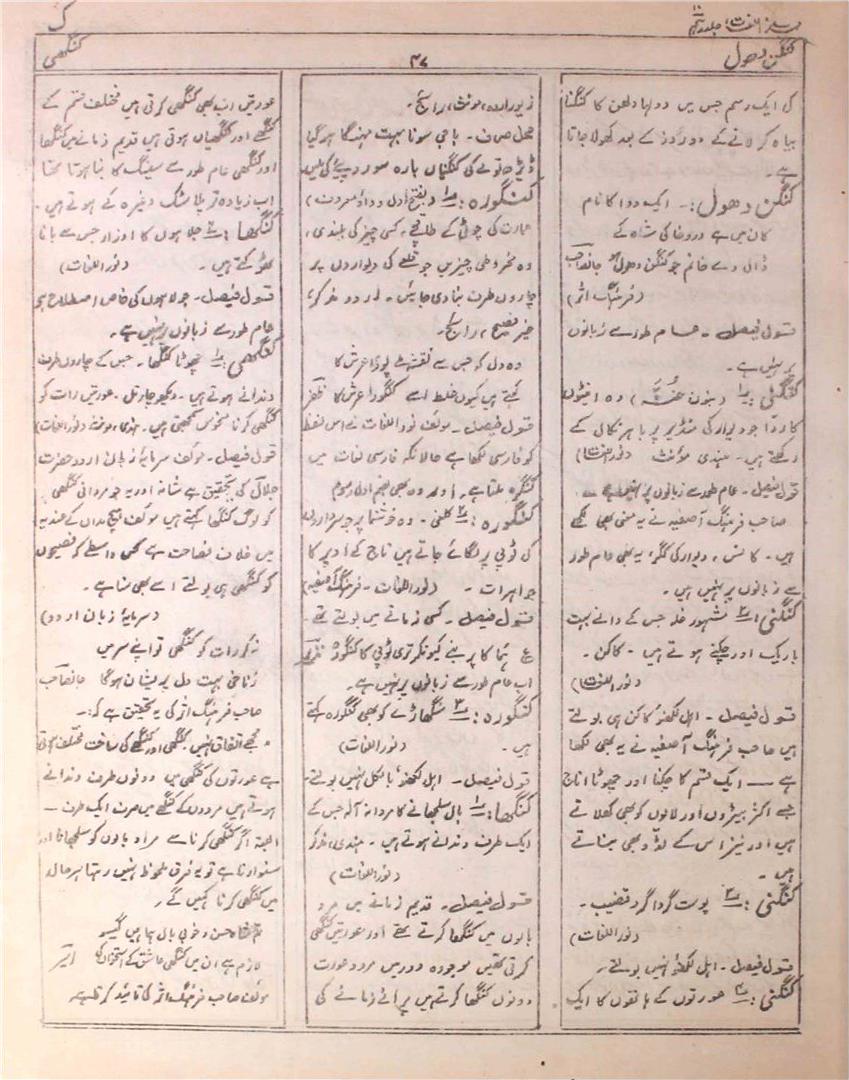 مہذب اللغات جلد دہم
ک
کنگن دھول
۴۷
کنگھی
کی ایک رسم جس میں دولہا دلھن کا کنگنا
بیاہ کر لانے کے دو روز کے بعد کھولا جاتا
ہے۔
کنگن دھول:۔ ایک دوا کا نام
کان میں ہے دروغا کی شاہ کے
ڈال دے خانم جو کنگن دھول ہو جانصاحب
(فرہنگ اثر)
قول فیصل۔ عام طور سے زبانوں
پر نہیں ہے۔
کنگنی:۱ (بنون غنہ) وہ اینٹوں
کا ردّا جو دیوار کی منڈیر پر باہر نکال کے
رکھتے ہیں۔ ہندی مؤنث (نوراللغات)
قول فیصل۔ عام طور سے زبانوں پر نہیں ہے۔
صاحب فرہنگ آصفیہ نے یہ معنی بھی لکھے
ہیں۔ کانس، دیوار کی ککر، یہ بھی عام طور
سے زبانوں پر نہیں ہیں۔
کنگنی:۲ مشہور غلہ جس کے دانے بہت
باریک اور چکنے ہوتے ہیں۔ کاکن۔
(نوراللغات)
قول فیصل۔ اہل لکھنؤ کاکن ہی بولتے
ہیں صاحب فرہنگ آصفیہ نے یہ بھی لکھا
ہے — ایک قسم کا چکنا اور چھوٹا اناج
جسے اکثر بٹیروں اور لالوں کو بھی کھلاتے
ہیں اور نیز اس کے لڈو بھی بناتے
ہیں۔
کنگنی:۳ پوست گرداگرد قضیب۔
(نوراللغات)
قول فیصل۔ اہل لکھنؤ نہیں بولتے۔
کنگنی:۴ عورتوں کے ہاتھوں کا ایک
زیور اردو، مونث، رائج۔
محل صرف۔ باجی سونا بہت مہنگا ہو گیا
ڈیڑھ تولے کی کنگنیاں بارہ سو روپیے کی ملیں
کنگورہ:۱ (بفتح اول و واؤ معروف)
عمارت کی چوٹی کے طاقچے، کسی چیز کی بلندی،
وہ مخروطی چیزیں جو قلعے کی دیواروں پر
چاروں طرف بنا دی جائیں۔ اردو مذکر،
غیر فصیح، رائج۔
وہ دل کو جس سے نقشہ ہے پورا عرش کا
کہتے ہیں کیوں غلط اسے کنگورا عرش کا ظفر
قول فیصل۔ مولف نوراللغات نے اس لفظ
کو فارسی لکھا ہے حالانکہ فارسی لغات میں
کنگرہ ملتا ہے۔ اور وہ بھی بضم اول و سوم
کنگورہ:۲ کلغی۔ وہ خوشنما پر جو سرداروں
کی ٹوپی پر لگائے جاتے ہیں تاج کے اوپر کا
جواہرات۔ (نوراللغات۔ فرہنگ آصفیہ)
قول فیصل۔ کسی زمانے میں بولتے تھے۔
ع ہما کا پر بنے کیونکر تری ٹوپی کا کنگورہ
اب عام طور سے زبانوں پر نہیں ہے۔
کنگورہ:۳ سنگھاڑے کو بھی کنگورہ کہتے
ہیں۔ (نوراللغات)
قول فیصل۔ اہل لکھنؤ بالکل نہیں بولتے۔
کنگھا:۱ بال سلجھانے کا مردانہ آلہ جس کے
ایک طرف دندانے ہوتے ہیں۔ ہندی، مذکر
(نوراللغات)
قول فیصل۔ قدیم زمانے میں مرد
بالوں میں کنگھا کرتے تھے اور عورتیں کنگھی
کرتی تھیں موجودہ دور میں مرد و عورت
دونوں کنگھا کرتے ہیں پرانے زمانے کی
عورتیں اب بھی کنگھی کرتی ہیں مختلف قسم کے
کنگھے اور کنگھیاں ہوتی ہیں قدیم زمانے میں کنگھا
اور کنگھی عام طور سے سینگ کا بنا ہوتا تھا
اب زیادہ تر پلاسٹک وغیرہ کے ہوتے ہیں۔
کنگھا:۲ جلاہوں کا اوزار جس سے بانا
ٹھوکتے ہیں۔ (نوراللغات)
قول فیصل۔ جولاہوں کی خاص اصطلاح ہے
عام طور سے زبانوں پر نہیں ہے۔
کنگھی:۱ چھوٹا کنگھا۔ جس کے چاروں طرف
دندانے ہوتے ہیں۔ دیکھو چارتل۔ عورتیں رات کو
کنگھی کرنا منحوس سمجھتی ہیں۔ ہندی، مونث (نوراللغات)
قول فیصل۔ مولف سرمایۂ زبان اردو حضرت
جلال کی تحقیق ہے شانہ اور یہ جو مردانی کنگھی
کو لوگ کنگھا کہتے ہیں مولف ہیچمداں کے عندیہ
میں خلاف فصاحت ہے کس واسطے کو فصیحوں
کو کنگھی ہی بولتے اسے بھی سنا ہے۔
(سرمایۂ زبان اردو)
نہ کر رات کو کنگھی تو اپنے سر میں
زناخی بہت دل پریشان ہوگا جانصاحب
صاحب فرہنگ اثر کی یہ تحقیق ہے کہ:۔
مجھے اتفاق نہیں کنگھی اور کنگھے کی ساخت مختلف ہوتی
ہے عورتوں کی کنگھی میں دونوں طرف دندانے
ہوتے ہیں مردوں کے کنگھے میں صرف ایک طرف —
البتہ اگر کنگھی کرنا سے مراد بالوں کو سلجھانا اور
سنوارنا ہے تو یہ فرق ملحوظ نہیں رہتا ہر حال
میں کنگھی کرنا کہیں گے۔
حسن و خوبی بال ہما ہیں گیسو
لازم ہے ان میں کنگھی عاشق کے استخواں کی
مولف صاحب فرہنگ اثر کی تائید کرتا ہے